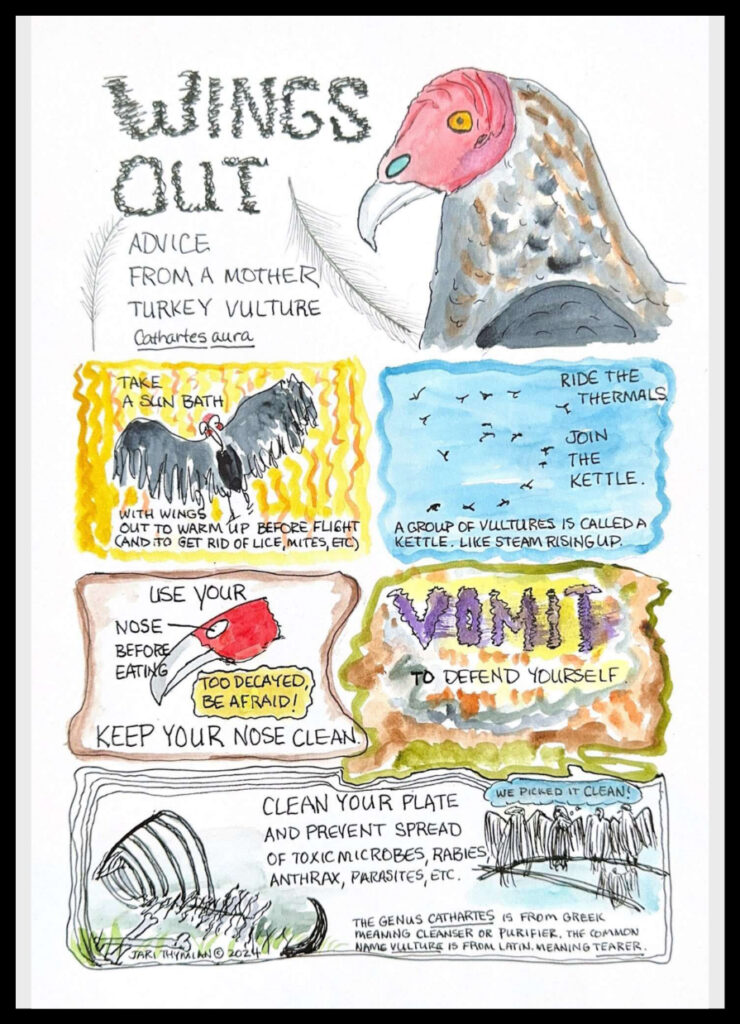 WINGS
OUT
ADVICE
FROM A MOTHER
TURKEY VULTURE
Cathartes aura
TAKE
A SUN BATH
WITH WINGS
OUT TO WARM UP BEFORE FLIGHT
(AND TO GET RID OF LICE, MITES, ETC)
RIDE THE
THERMALS
JOIN
THE
KETTLE.
A GROUP OF VULTURES IS CALLED A
KETTLE. LIKE STEAM RISING UP.
USE YOUR
NOSE
BEFORE
EATING
TOO DECAYED,
BE AFRAID!
KEEP YOUR NOSE CLEAN.
VOMIT
TO DEFEND YOURSELF.
CLEAN YOUR PLATE
AND PREVENT SPREAD
OF TOXIC MICROBES, RABIES,
ANTHRAX, PARASITES, ETC.
WE PICKED IT CLEAN!
THE GENUS CATHARTES IS FROM GREEK
MEANING CLEANSER OR PURIFIER. THE COMMON
NAME VULTURE IS FROM LATIN, MEANING TEARER.
JARI THYMIAN © 2024